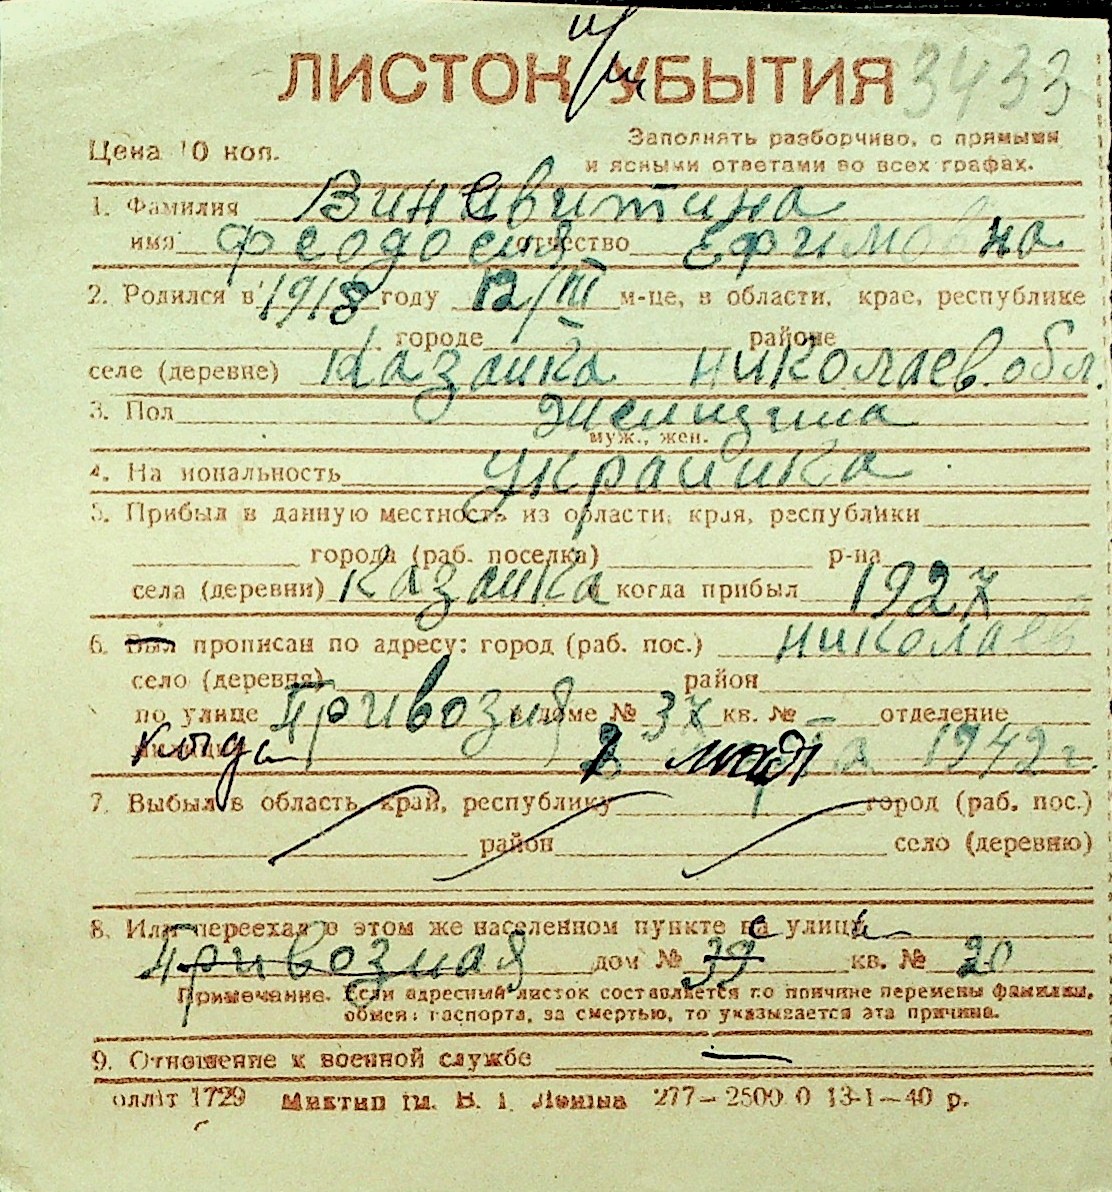 ЛИСТОК УБЫТИЯ 3433
Цена 10 коп.
Заполнять разборчиво, с прямыми
и ясными ответами во всех графах.
1. Фамилия Виневитина
имя Феодосия отчество Ефимовна
2. Родился в 1918 году 12/III м-це, в области, крае, республике
городе районе
селе (деревне) Казанка Николаев. обл.
3. Пол Женщина
муж., жен.
4. Национальность Украинка
5. Прибыл в данную местность из области, края, республики
города (раб. поселка) р-на
села (деревни) Казанка и когда прибыл 1927
6. Был прописан по адресу: город (раб. пос.) Николаев
село (деревня) район
по улице Привозная в доме № 37 кв. № – отделение
когда 1942 г.
7. Выбыл в область, край, республику город (раб. пос.)
район село (деревню)
8. Или переехал в этом же населенном пункте на улицу
Привозная дом № 39 кв. № 20
Примечание. Если адресный листок составляется по причине перемены фамилии,
обмена паспорта, за смертью, то указывается эта причина.
9. Отношение к военной службе —
обллит 1729 Миктип им. В. И. Ленина 277—2500 0 13-1—40 р.